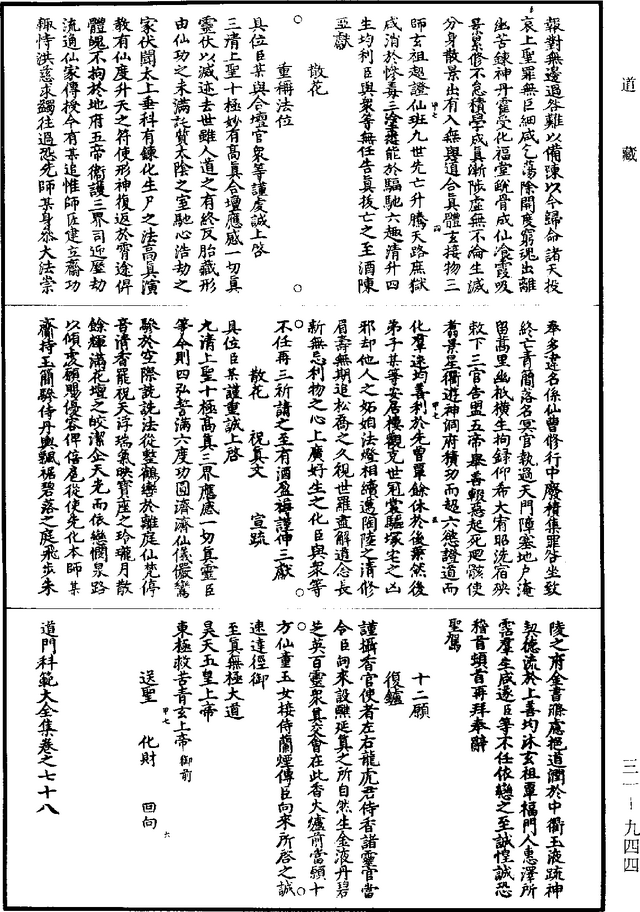 道藏
報對無邊過咎難以備陳以今歸命諸天投
哀上聖罪無巨細咸乞蕩除開度窮魂出離
幽苦鍊神丹霍受化福堂蛻骨成仙飡霞吸
景累修不怠積學成真漸陟虛無不淪生滅
分身散景出有入無與道合真體玄接物三
師玄祖超證仙班九世先亡升騰天路庶獄
咸消於慘毒三塗悉能於驅馳六趣清升四
生均利臣與衆等無任告真拔亡之至酒陳
亞獻
散花
重稱法位
具位臣某與合壇官衆等謹虔誠上啓
三清上聖十極妙有高真合壇應感一切真
靈伏以滅迹去世雖人道之有終反胎藏形
由仙功之未滿託質太陰之室馳心浩劫之
家伏聞太上垂科有鍊化生尸之法高真演
教有仙度升天之符使形神復返於霄途俾
體魄不拘於地府五帝衛護三界司迎歷劫
流通仙家傳授今有某追惟師匠建立齋功
輙恃洪慈求蠲往過恐先師某身忝大法崇
奉多違名係仙曹修行中廢積集罪咎坐致
終亡青簡落名冥官執過天門障塞地戶淹
留萬里幽柩橫生拘録仰希大宥昭洗宿殃
敕下三官告盟五帝舉善輟惡起死肥骸使
耆景星衢遊神洞府積功而超六慾證道而
化羣迷均善利於先曽單餘休於後葉然後
弟子某等安居樓觀克世冠裳驅塚宅之凶
邪却他人之妬媢法燈相續邁陶陸之清修
眉壽無期追松喬之久視世羅盡解道念長
新無忘利物之心上廣好生之化臣與衆等
不任再三祈請之至有酒盈樽謹伸三獻
散花　祝真文　宣疏
具位臣某謹重誠上啓
九清上聖十極高真三界應感一切真靈臣
等今則四弘誓滿六度功圓濟濟仙儀儼鸞
驂於空際詵詵法從整鶴轡於離庭仙梵停
音清香罷祝天浮瑞氣映寶座之玲瓏月散
餘輝滿花壇之皎潔企天光而依戀憫泉路
以傾虔願賜優容俾倍扈從使先化本師某
齎持玉簡驂侍丹輿飄裾碧落之庭飛步朱
陵之府金書滌慮挹道潤於中衢玉液疏神
契德流於上善均沐玄祖覃福門人惠澤所
霑羣生咸遂臣等不任依戀之至誠惶誠恐
稽首頓首再拜奉辭
聖駕
十二願
復鑪
謹攝香官使者左右龍虎君侍香諸靈官當
令臣向來設醮延真之所自然生金液丹碧
芝英百靈衆真交會在此香火爐前當願十
方仙童玉女接侍蘭煙傳臣向來所啓之誠
速達徑御
至真無極大道
昊天五皇上帝
東極救苦青玄上帝御前
送聖　化財　回向
道門科範大全集卷之七十八
三一—九四四